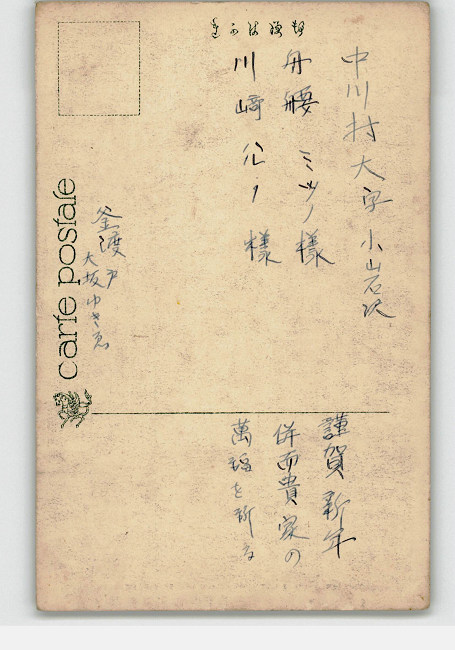 きかは便郵
中川村大字小山岩沢
舟腰ミツノ様
川崎ハルノ様
釜渡戸
大坂ゆきゑ
carte postale
謹賀新年
併而貴家の
萬福を祈る